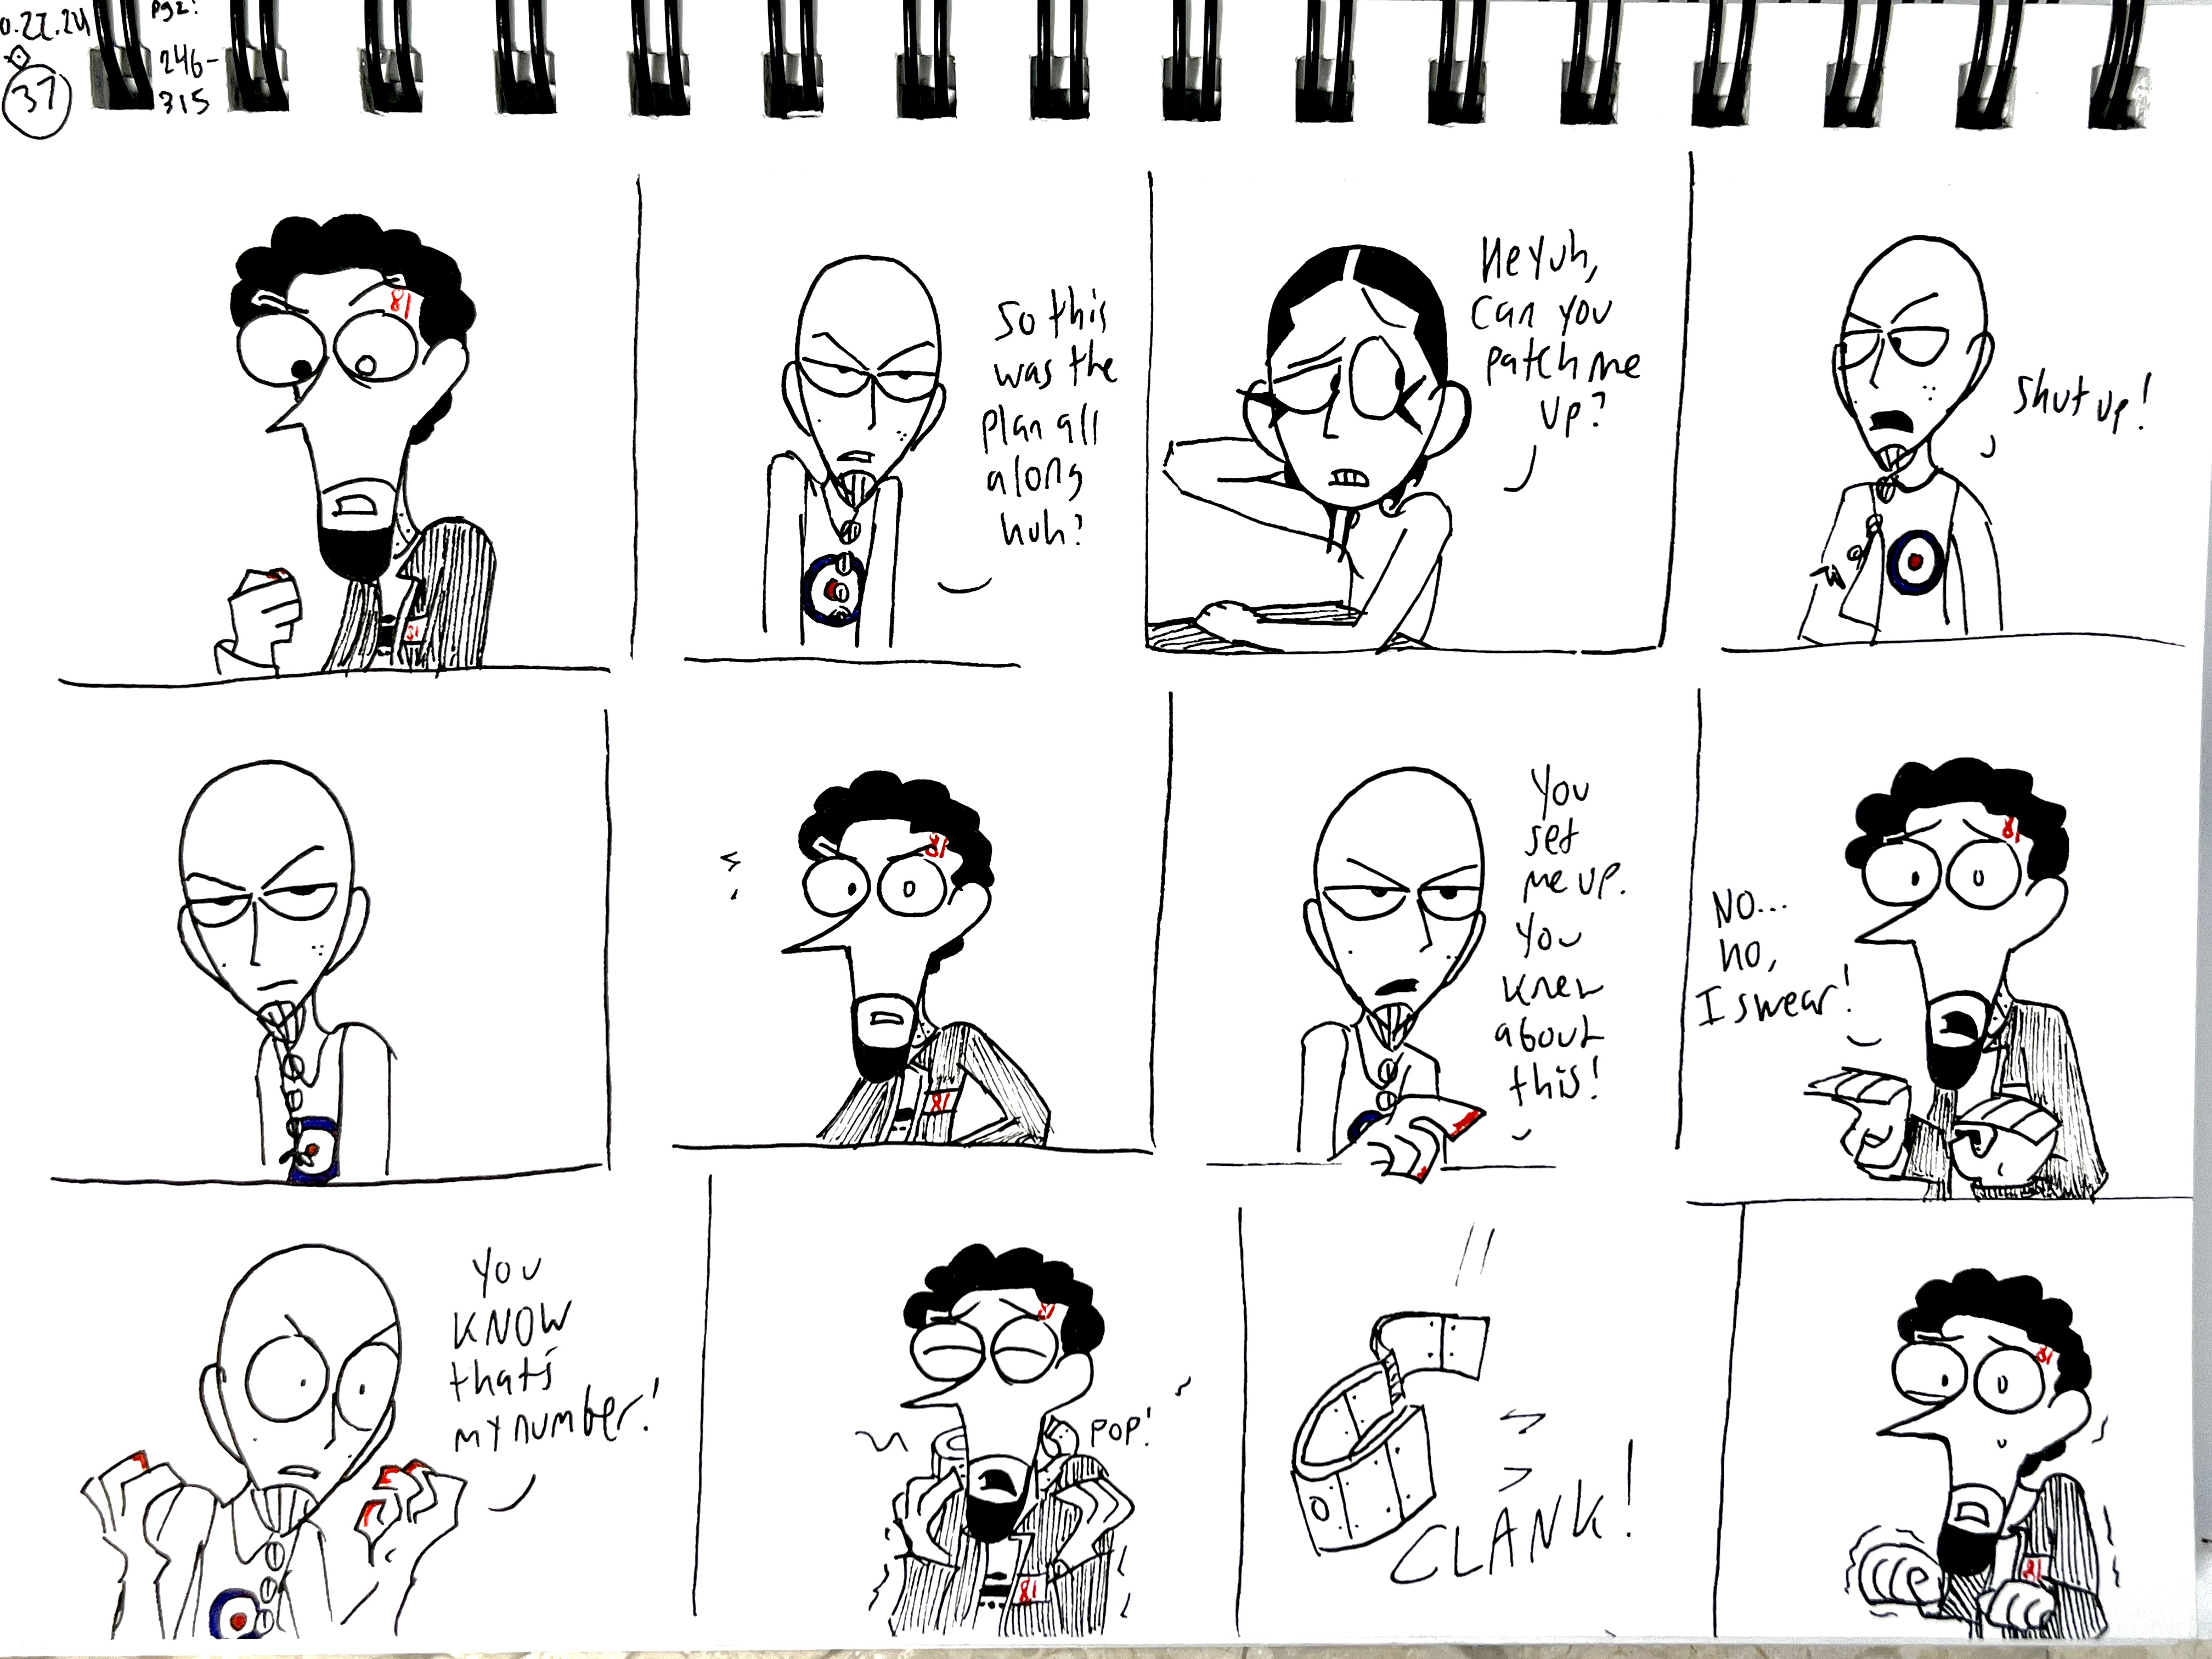 0.22.24
37
pg2:
246-
315
81
81
So this
was the
plan all
along
huh?
Heyuh,
can you
patch me
up?
Shut up!
81
81
You
set
me up.
You
knew
about
this!
81
NO...
no,
I swear!
You
KNOW
that's
my number!
81
POP!
81
CLANK!
81
81